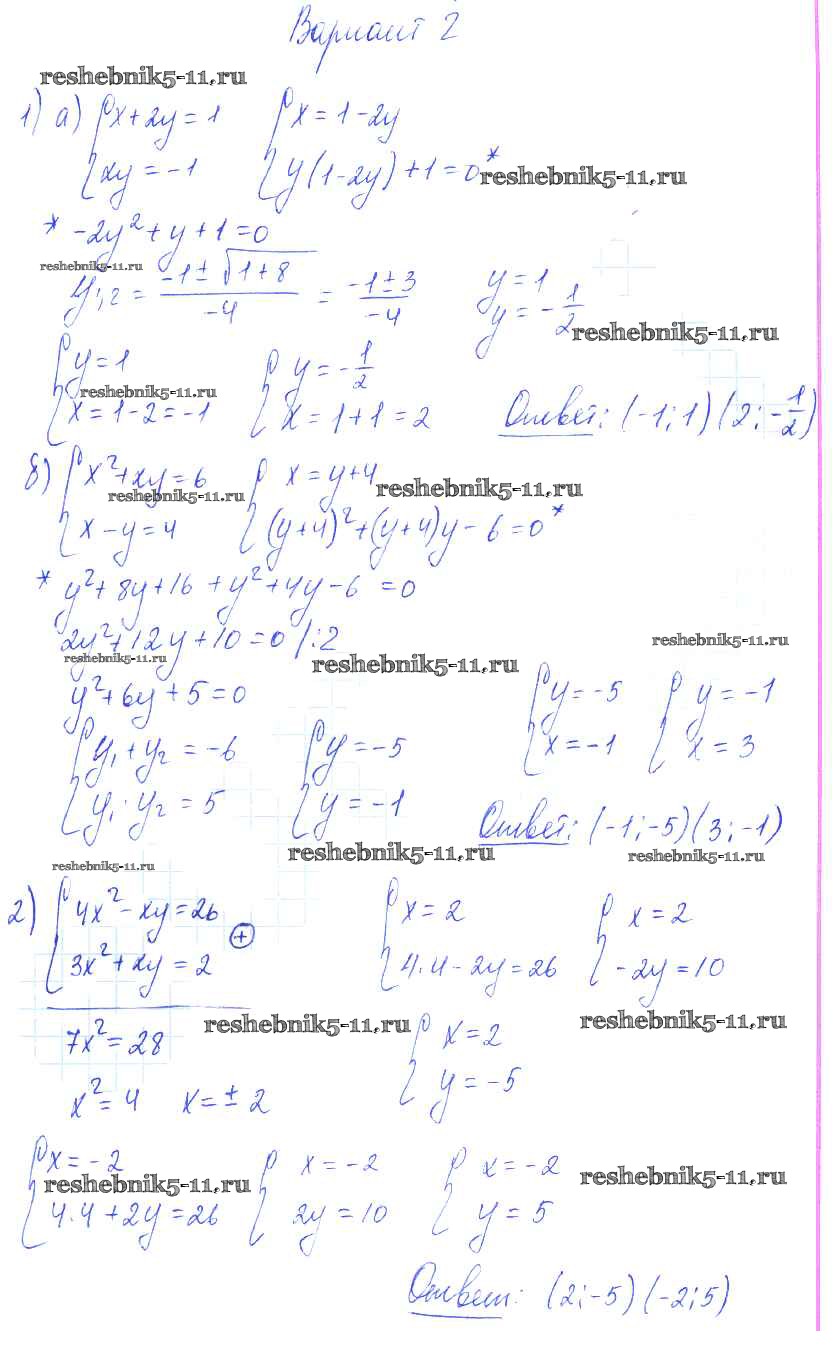 Вариант 2
reshebnik5-11.ru
1) а) { x + 2y = 1   { x = 1 - 2y
xy = -1   y(1-2y) + 1 = 0*
reshebnik5-11.ru
* -2y² + y + 1 = 0
reshebnik5-11.ru
y₁,₂ = (-1 ± √(1+8))/(-4) = (-1 ± 3)/(-4)   y = 1
y = -1/2
reshebnik5-11.ru
{ y = 1   { y = -1/2
reshebnik5-11.ru
x = 1 - 2 = -1   x = 1 + 1 = 2   Ответ: (-1; 1) (2; -1/2)
б) { x² + xy = 6   { x = y + 4
reshebnik5-11.ru
reshebnik5-11.ru
x - y = 4   (y+4)² + (y+4)y - 6 = 0*
* y² + 8y + 16 + y² + 4y - 6 = 0
2y² + 12y + 10 = 0 /:2
reshebnik5-11.ru
reshebnik5-11.ru
reshebnik5-11.ru
y² + 6y + 5 = 0   { y = -5   { y = -1
x = -1   x = 3
{ y₁ + y₂ = -6   { y = -5
y₁ · y₂ = 5   y = -1   Ответ: (-1; -5) (3; -1)
reshebnik5-11.ru
reshebnik5-11.ru
reshebnik5-11.ru
2) { 4x² - xy = 26   { x = 2   { x = 2
3x² + xy = 2   (+)   4·4 - 2y = 26   -2y = 10
7x² = 28   { x = 2
reshebnik5-11.ru
reshebnik5-11.ru
x² = 4   x = ± 2   y = -5
{ x = -2   { x = -2   { x = -2
reshebnik5-11.ru
reshebnik5-11.ru
4·4 + 2y = 26   2y = 10   y = 5
Ответ: (2; -5) (-2; 5)